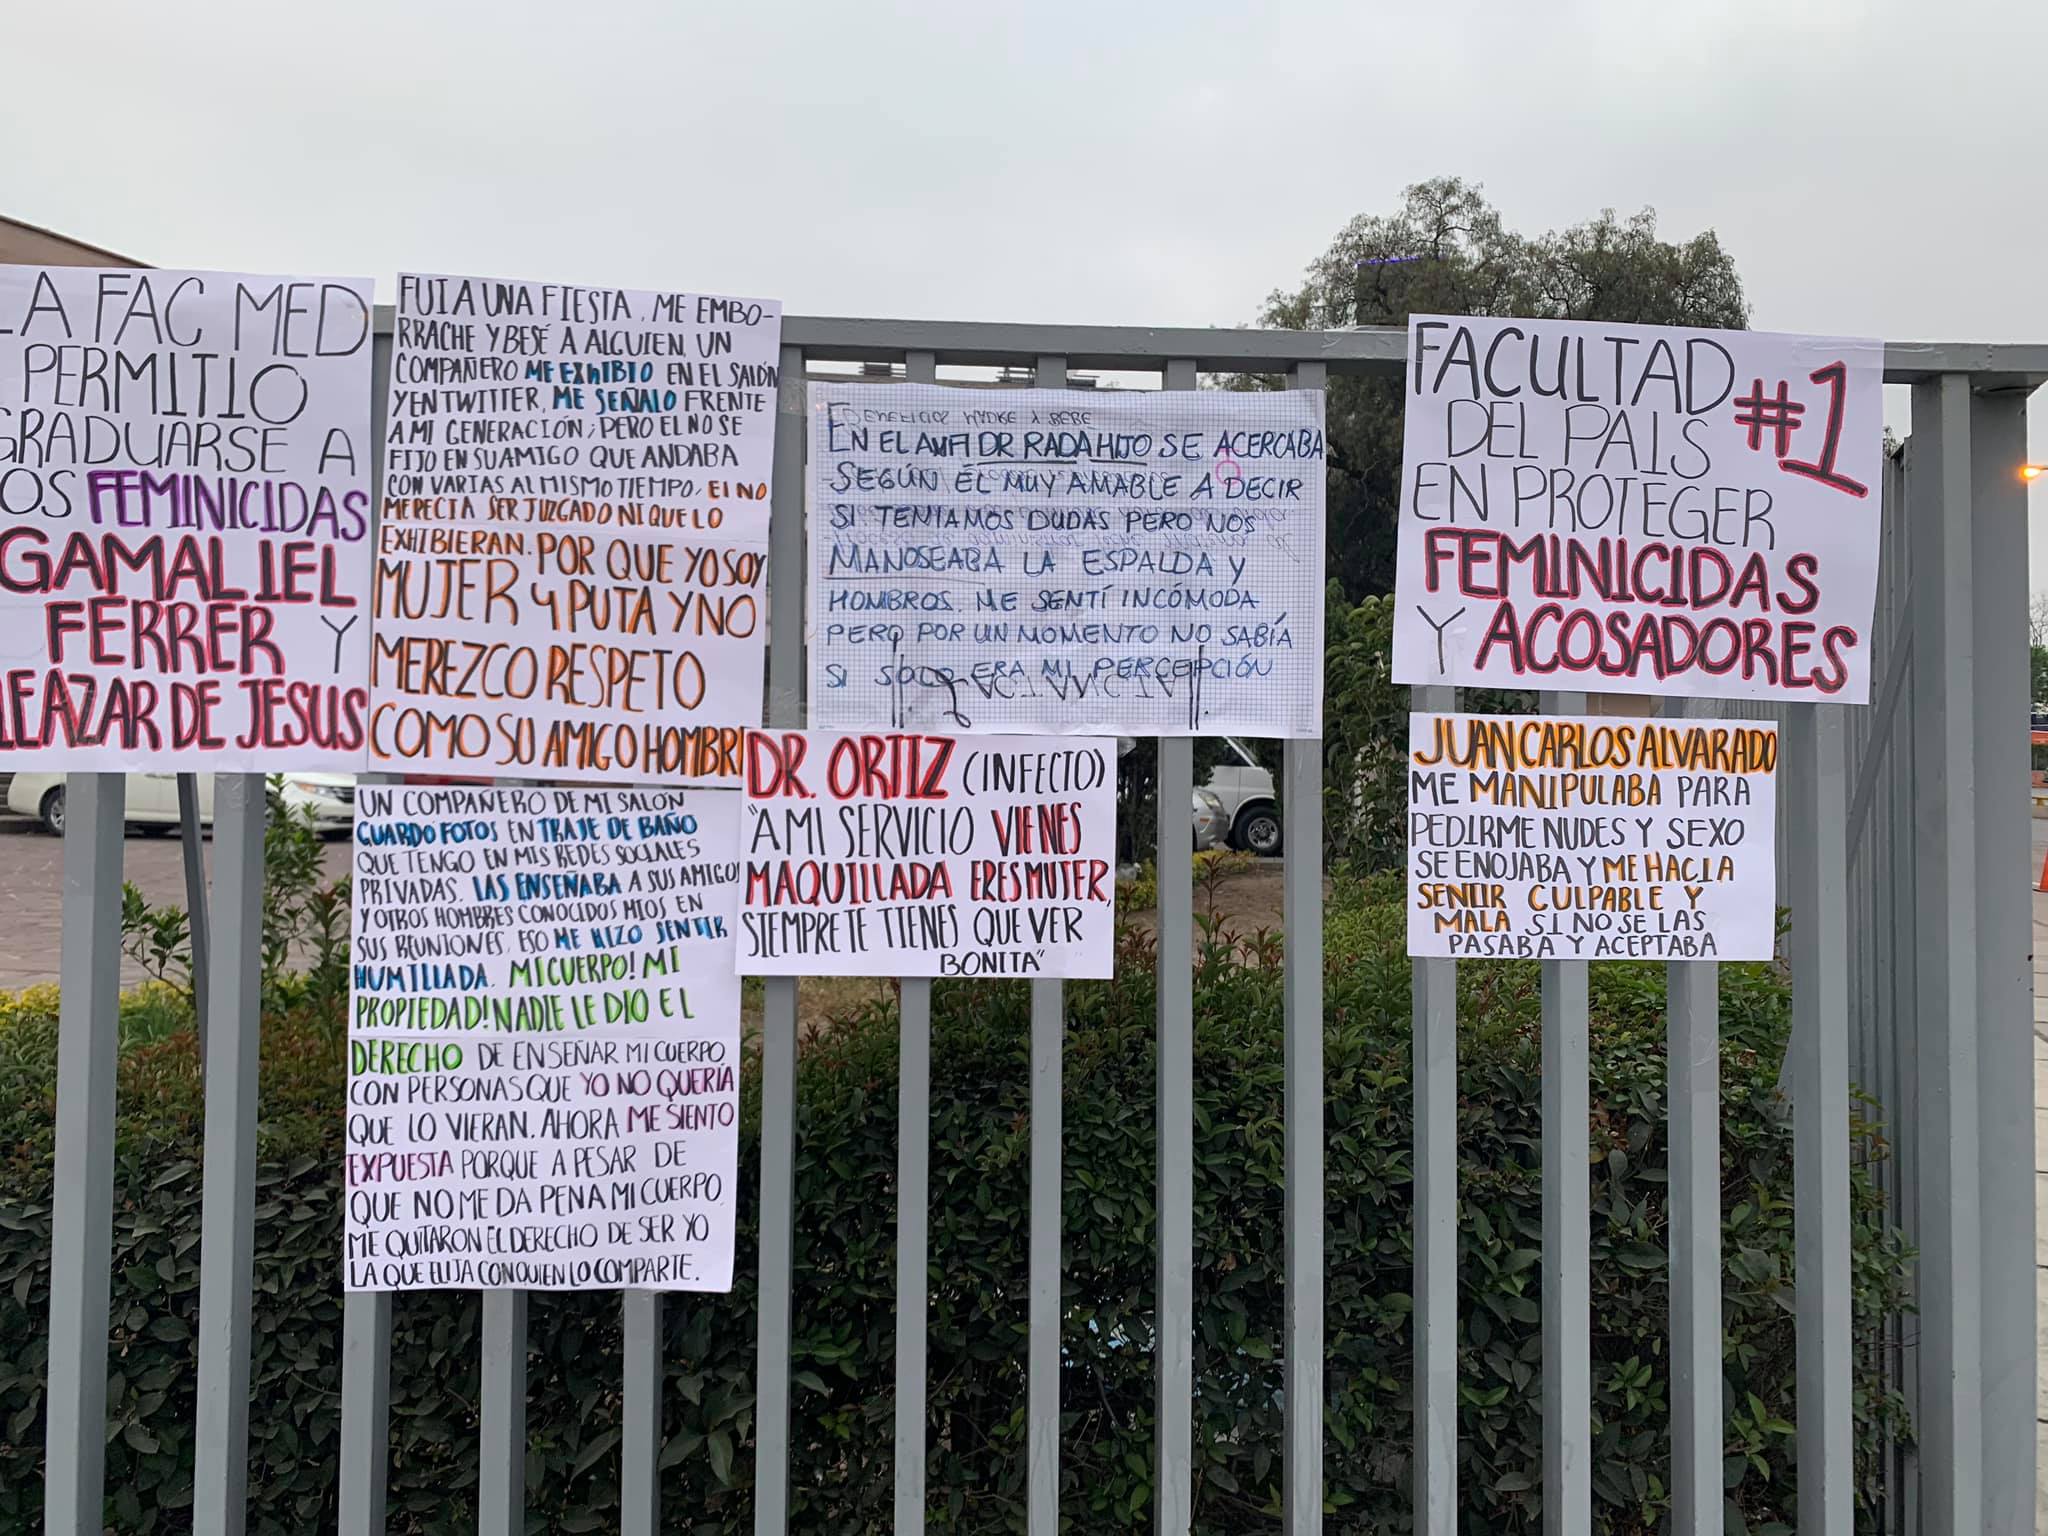 LA FAC MED
PERMITIO
GRADUARSE A
LOS FEMINICIDAS
GAMALIEL
FERRER Y
ELEAZAR DE JESUS
FUI A UNA FIESTA, ME EMBO-
RRACHE Y BESÉ A ALGUIEN, UN
COMPAÑERO ME EXHIBIO EN EL SALÓN
Y EN TWITTER, ME SEÑALO FRENTE
A MI GENERACIÓN; PERO EL NO SE
FIJO EN SU AMIGO QUE ANDABA
CON VARIAS AL MISMO TIEMPO, EL NO
MERECIA SER JUZGADO NI QUE LO
EXHIBIERAN. POR QUE YO SOY
MUJER Y PUTA Y NO
MEREZCO RESPETO
COMO SU AMIGO HOMBRE
UN COMPAÑERO DE MI SALÓN
GUARDO FOTOS EN TRAJE DE BAÑO
QUE TENGO EN MIS REDES SOCIALES
PRIVADAS. LAS ENSEÑABA A SUS AMIGOS
Y OTROS HOMBRES CONOCIDOS MIOS EN
SUS REUNIONES, ESO ME HIZO SENTIR
HUMILLADA. MI CUERPO! MI
PROPIEDAD! NADIE LE DIO EL
DERECHO DE ENSEÑAR MI CUERPO
CON PERSONAS QUE YO NO QUERÍA
QUE LO VIERAN. AHORA ME SIENTO
EXPUESTA PORQUE A PESAR DE
QUE NO ME DA PENA MI CUERPO,
ME QUITARON EL DERECHO DE SER YO
LA QUE ELIJA CON QUIEN LO COMPARTE.
EN EL DR RADA HIJO SE ACERCABA
SEGÚN ÉL MUY AMABLE A DECIR
SI TENIAMOS DUDAS PERO NOS
MANOSEABA LA ESPALDA Y
HOMBROS. ME SENTÍ INCÓMODA
PERO POR UN MOMENTO NO SABÍA
SI SOLO ERA MI PERCEPCIÓN
DR. ORTIZ (INFECTO)
"A MI SERVICIO VIENES
MAQUILLADA ERES MUJER,
SIEMPRE TE TIENES QUE VER
BONITA"
FACULTAD #1
DEL PAIS
EN PROTEGER
FEMINICIDAS
Y ACOSADORES
JUAN CARLOS ALVARADO
ME MANIPULABA PARA
PEDIRME NUDES Y SEXO
SE ENOJABA Y ME HACIA
SENTIR CULPABLE Y
MALA SI NO SE LAS
PASABA Y ACEPTABA